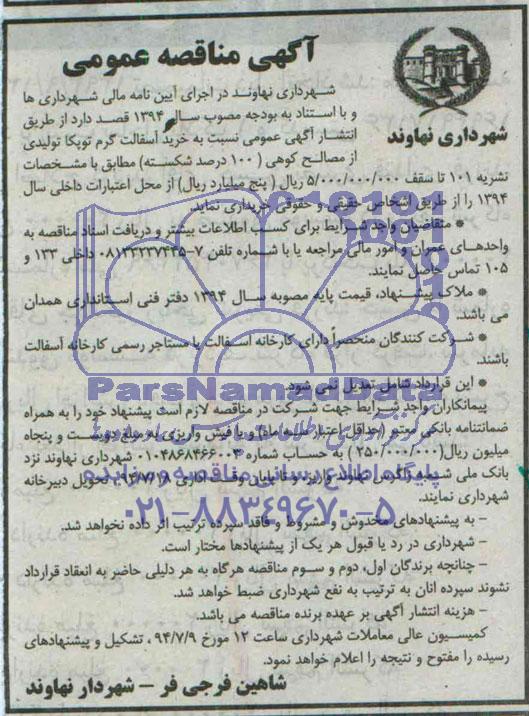 آگهی مناقصه عمومی
شهرداری نهاوند
شهرداری نهاوند در اجرای آیین نامه مالی شهرداری ها
و با استناد به بودجه مصوب سال ۱۳۹۴ قصد دارد از طریق
انتشار آگهی عمومی نسبت به خرید آسفالت گرم توپکا تولیدی
از مصالح کوهی (۱۰۰ درصد شکسته) مطابق با مشخصات
نشریه ۱۰۱ تا سقف ۵/۰۰۰/۰۰۰/۰۰۰ ریال (پنج میلیارد ریال) از محل اعتبارات داخلی سال
۱۳۹۴ را از طریق اشخاص حقیقی و حقوقی خریداری نماید
* متقاضیان واجد شرایط برای کسب اطلاعات بیشتر و دریافت اسناد مناقصه به
واحدهای عمران و امور مالی مراجعه یا با شماره تلفن ۷-۰۸۱۳۳۲۳۷۴۳۵ داخلی ۱۳۳ و
۱۰۵ تماس حاصل نمایند.
* ملاک پیشنهاد، قیمت پایه مصوبه سال ۱۳۹۴ دفتر فنی استانداری همدان
می باشد.
* شرکت کنندگان منحصراً دارای کارخانه آسفالت یا مستاجر رسمی کارخانه آسفالت
باشند.
* این قرارداد شامل تعدیل نمی شود.
پیمانکاران واجد شرایط جهت شرکت در مناقصه لازم است پیشنهاد خود را به همراه
ضمانتنامه بانکی معتبر (حداقل اعتبار سه ماه) و یا فیش واریزی به مبلغ دویست و پنجاه
میلیون ریال (۲۵۰/۰۰۰/۰۰۰) به حساب شماره ۰۱۰۴۸۶۸۴۶۶۰۰۳ شهرداری نهاوند نزد
بانک ملی شعبه زاگرس نهاوند واریز و تا پایان وقت اداری ۹۴/۷/۸ تحویل دبیرخانه
شهرداری نمایند.
– به پیشنهادهای مخدوش و مشروط و فاقد سپرده ترتیب اثر داده نخواهد شد.
– شهرداری در رد یا قبول هر یک از پیشنهادها مختار است.
– چنانچه برندگان اول، دوم و سوم مناقصه هرگاه به هر دلیلی حاضر به انعقاد قرارداد
نشوند سپرده انان به ترتیب به نفع شهرداری ضبط خواهد شد.
– هزینه انتشار آگهی بر عهده برنده مناقصه می باشد.
کمیسیون عالی معاملات شهرداری ساعت ۱۲ مورخ ۹۴/۷/۹ ، تشکیل و پیشنهادهای
رسیده را مفتوح و نتیجه را اعلام خواهد نمود.
شاهین فرجی فر – شهردار نهاوند
ParsNamadData
پایگاه اطلاع رسانی مناقصه و مزایده
۰۲۱-۸۸۳۴۹۶۷۰-۵